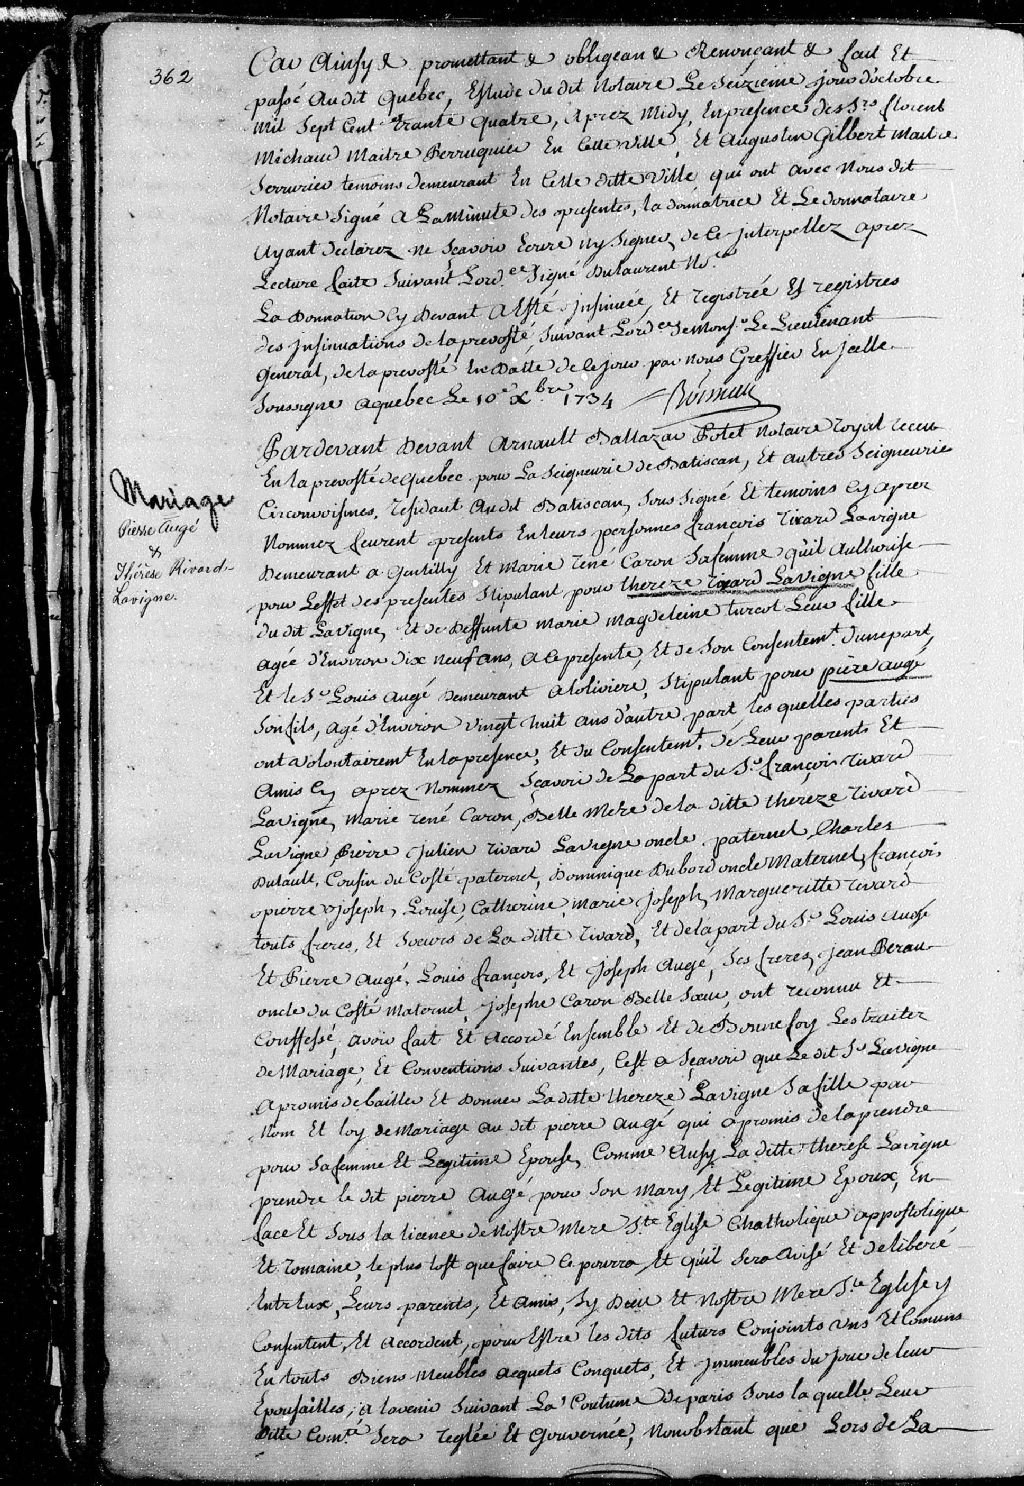 362
Car Ainsy & promettant & obligean & Renonçant & fait Et
passé Audit Quebec, Estude du dit Notaire Le Seizieme jour d'octobre
mil Sept Cent Trante quatre, aprez Midy, En presence des Srs florent
Michaud Maitre Perruquier En Cette Ville, Et Augustin Gilbert Maitre
Serrurier temoins demeurant En Cette ditte Ville qui ont avec Nous dit
Notaire Signé a La Minute des presentes, la donnatrice Et Le donnataire
Ayant declarez ne Sçavoir Ecrire ny Signer de Ce Interpellez aprez
Lecture faite Suivant Lord.ce Signé Dulaurent No.re
La Donnation Cy Devant A Esté Insinuée, Et registrée Es registres
des Insinuations de la prevosté, Suivant Lord.ce de Mons.r Le Lieutenant
General, de la prevosté En Datte de Ce jour par nous Greffier En jcelle
Soussigne a quebec Le 10e Xbre 1734 Boisseau
Mariage
Pierre Augé
&
Thérèse Rivard-
Lavigne.
Pardevant Devant Arnault Baltazar Polet Notaire Royal receu
En la prevosté de Quebec pour La Seigneurie de Batiscan, Et autres Seigneurie
Circonvoisines, residant Audit Batiscan, Sous Signé Et temoins Cy aprez
Nommez feurent presents En leurs personnes françois rivard Lavigne
Demeurant a Gentilly Et Marie rené Caron Sa femme qu'il Authorise
pour Leffet des presentes Stipulant pour thereze rivard LaVigne fille
du dit LaVigne, Et de Deffunte Marie Magdeleine turcot Leur fille
agée d'Environ dix neuf ans, a Ce presente, Et de Son Consentem.t d'une part,
Et le Sr Louis Augé Demeurant a loliviere, Stipulant pour pierre augé
Son fils, agé d'Environ vingt huit ans d'autre part, les quelles parties
ont Volontairem.t En la presence, Et du Consentem.t de Leur parents Et
Amis Cy aprez Nommez Sçavoir de La part du Sr françois rivard
LaVigne, Marie rené Caron, Belle Mere de la ditte thereze rivard
LaVigne Pierre Julien rivard Lavigne oncle paternel, Charles
Dutault, Cousin du Costé paternel, Dominique Dubord oncle Maternel, françois
pierre Joseph, Louise, Catherine, Marie Joseph, Margueritte rivard
touts freres, Et Soeurs de La ditte rivard, Et de la part du Sr Louis Augé
Et Pierre Augé, Louis françois, Et Joseph Augé, Ses freres, Jean Berau
oncle du Costé Maternel, Josephe Caron Belle Soeur, ont reconnu Et
Confessé, avoir fait Et Accordé Ensemble Et de Bonne foy Les traitez
de Mariage, Et Conventions Suivantes, Cest a Sçavoir que Le dit Sr Lavigne
a promis de bailler Et Donner La ditte thereze Lavigne Sa fille par
Nom Et loy de Mariage au dit pierre augé qui a promis de la prendre
pour Sa femme Et Legitime Epouse, Comme Ausy La ditte therese Lavigne
prendre le dit pierre Augé pour Son Mary Et Legitime Epoux, En
face Et Sous la licence de Nostre Mere Ste Eglise Chatholique appostolique
Et romaine, le plus tost que faire Ce pourra, Et qu'il Sera Avisé Et deliberé
Entr Eux, Leurs parents, Et amis, Sy Dieu Et Nostre Mere Ste Eglise y
Consentent, Et accordent, pour Estre les dits futurs Conjoints Uns Et Comuns
En touts Biens Meubles acquets Conquets, Et jmmeubles du jour de leur
Epousailles, a lavenir Suivant La Coutume de paris Sous la quelle Leur
Ditte Com.té Sera reglée Et Gouvernée, Nonobstant que Lors de La